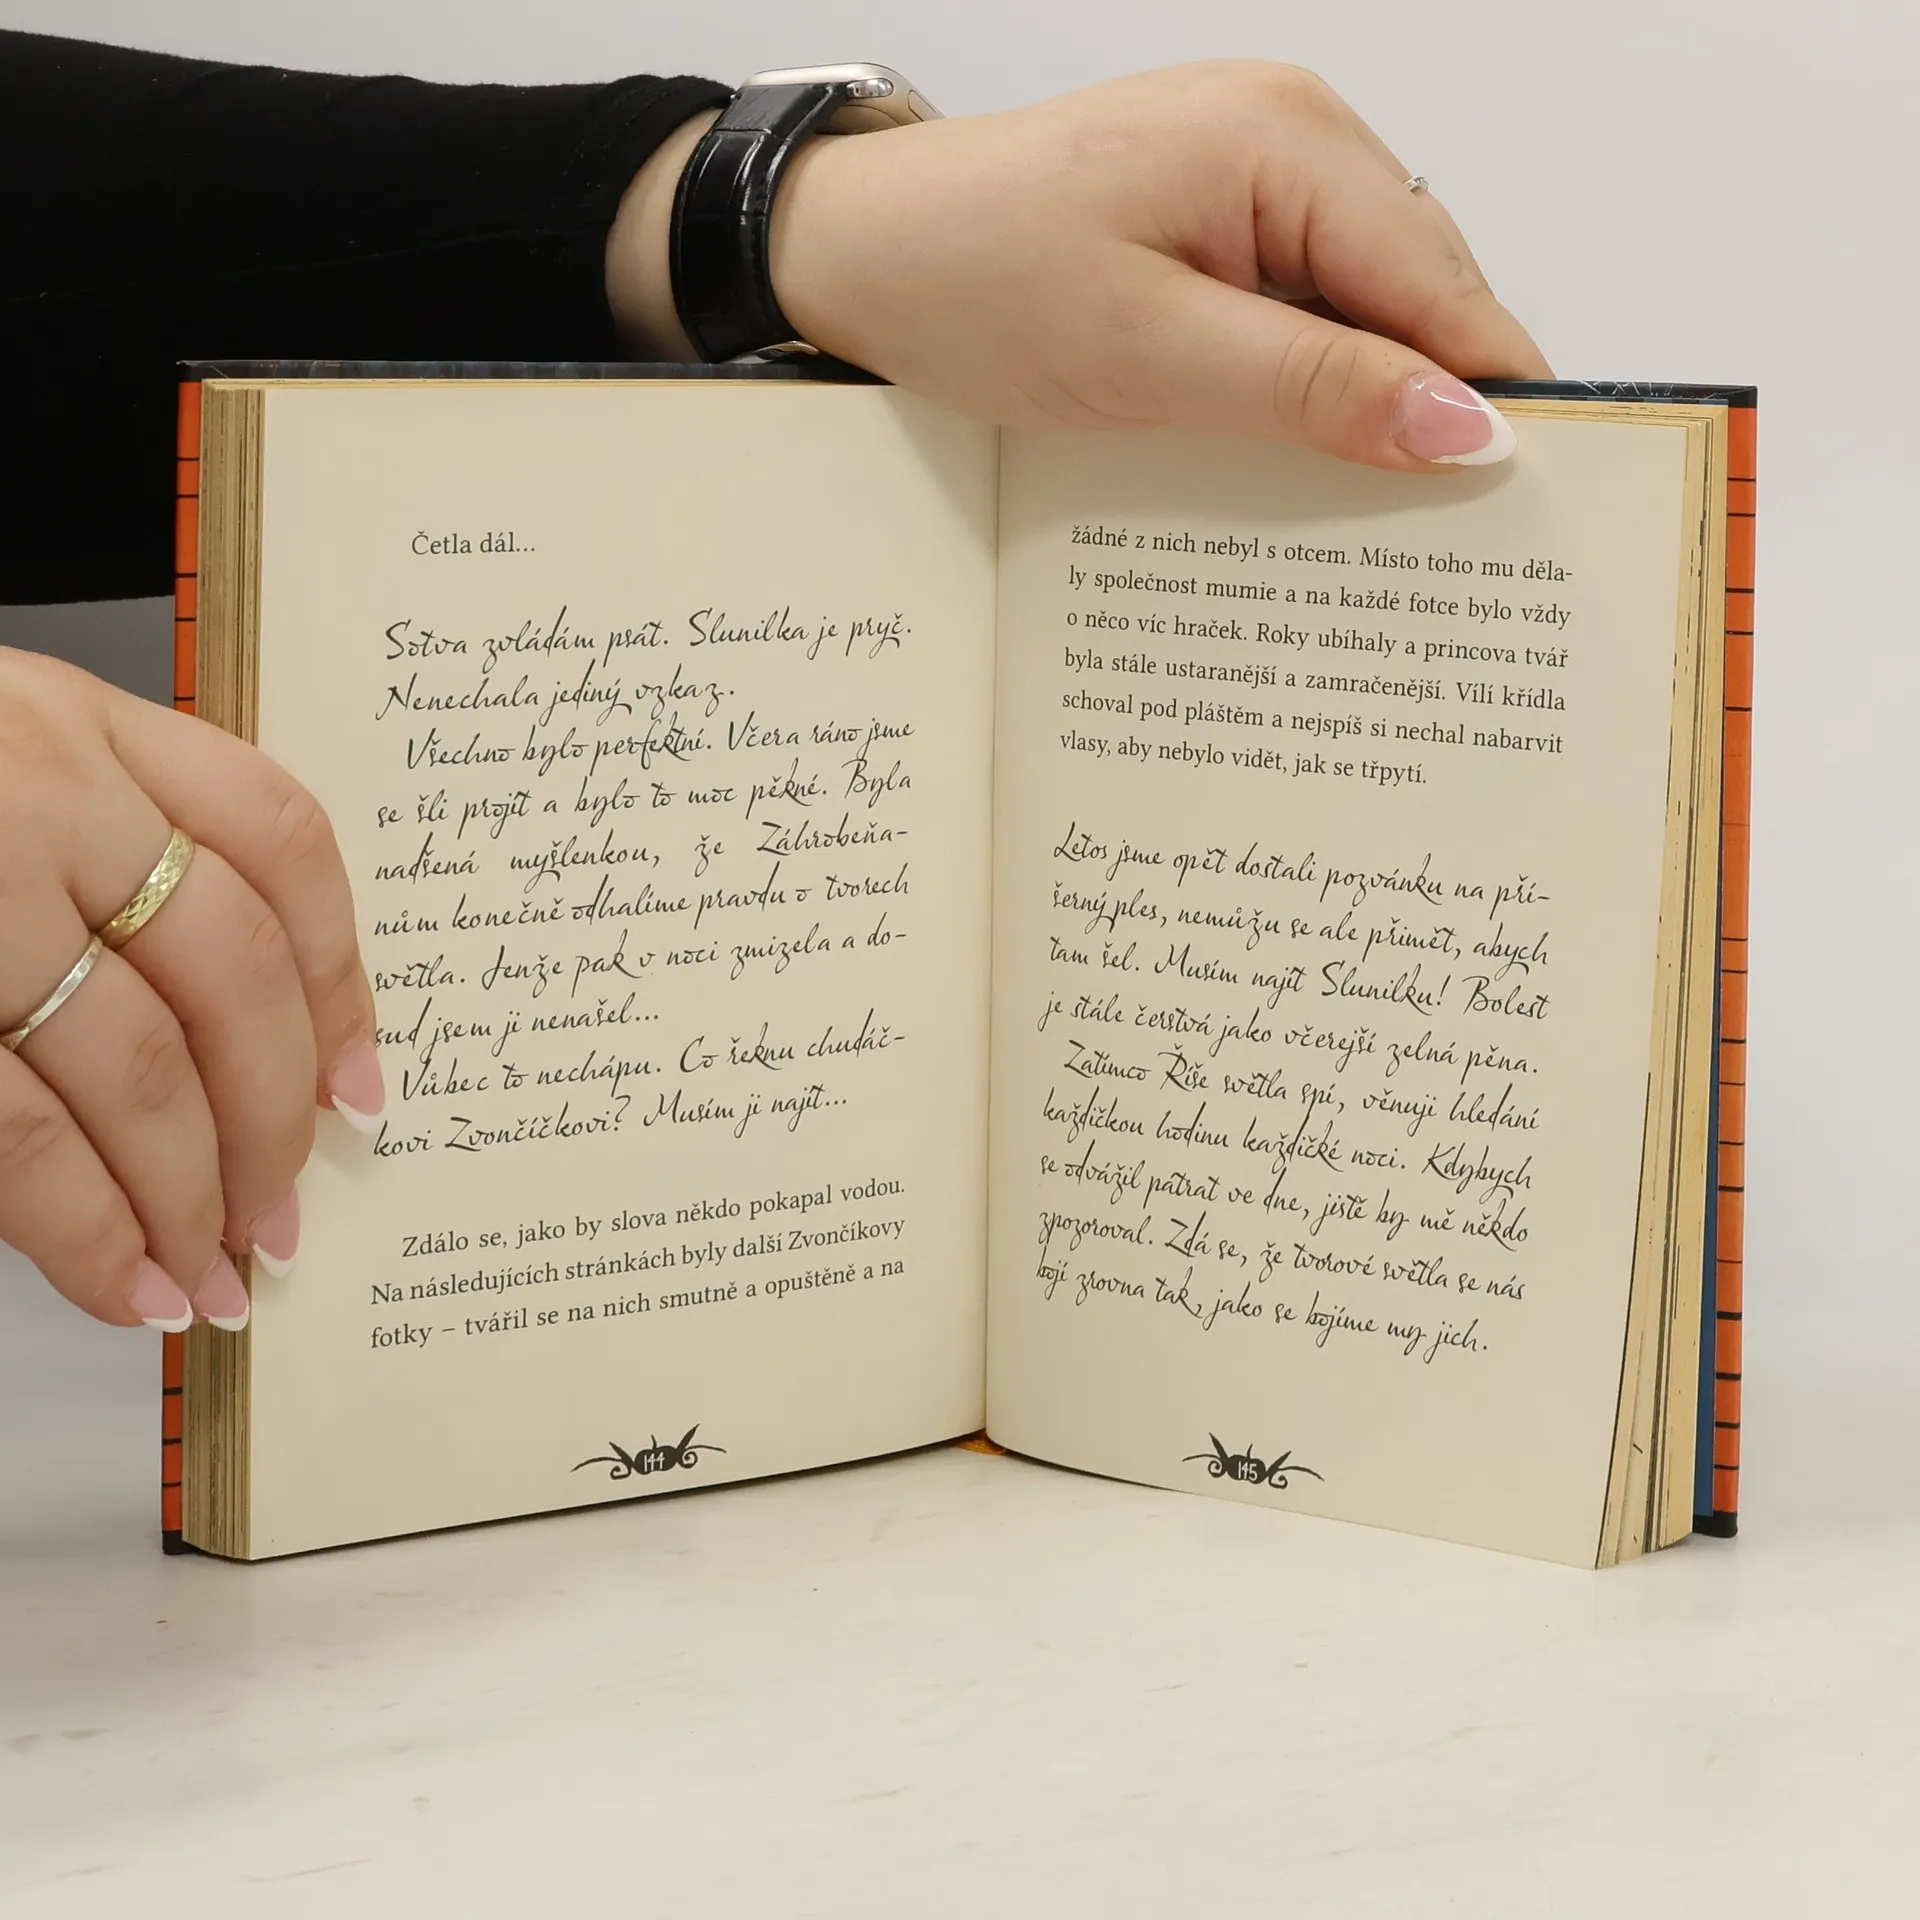 Četla dál...
Sotva zvládám psát. Slunilka je pryč.
Nenechala jediný vzkaz.
Všechno bylo perfektní. Včera ráno jsme
se šli projít a bylo to moc pěkné. Byla
nadšená myšlenkou, že Záhrobeňa-
nům konečně odhalíme pravdu o tvorech
světla. Jenže pak v noci zmizela a do-
sud jsem ji nenašel...
Vůbec to nechápu. Co řeknu chudáč-
kovi Zvončíčkovi? Musím ji najít...
Zdálo se, jako by slova někdo pokapal vodou.
Na následujících stránkách byly další Zvončíkovy
fotky – tvářil se na nich smutně a opuštěně a na
144
žádné z nich nebyl s otcem. Místo toho mu děla-
ly společnost mumie a na každé fotce bylo vždy
o něco víc hraček. Roky ubíhaly a princova tvář
byla stále ustaranější a zamračenější. Vílí křídla
schoval pod pláštěm a nejspíš si nechal nabarvit
vlasy, aby nebylo vidět, jak se třpytí.
Letos jsme opět dostali pozvánku na pří-
šerný ples, nemůžu se ale přimět, abych
tam šel. Musím najít Slunilku! Bolest
je stále čerstvá jako včerejší zelná pěna.
Zatímco Říše světla spí, věnuji hledání
každičkou hodinu každičké noci. Kdybych
se odvážil pátrat ve dne, jistě by mě někdo
zpozoroval. Zdá se, že tvorové světla se nás
bojí zrovna tak, jako se bojíme my jich.
145